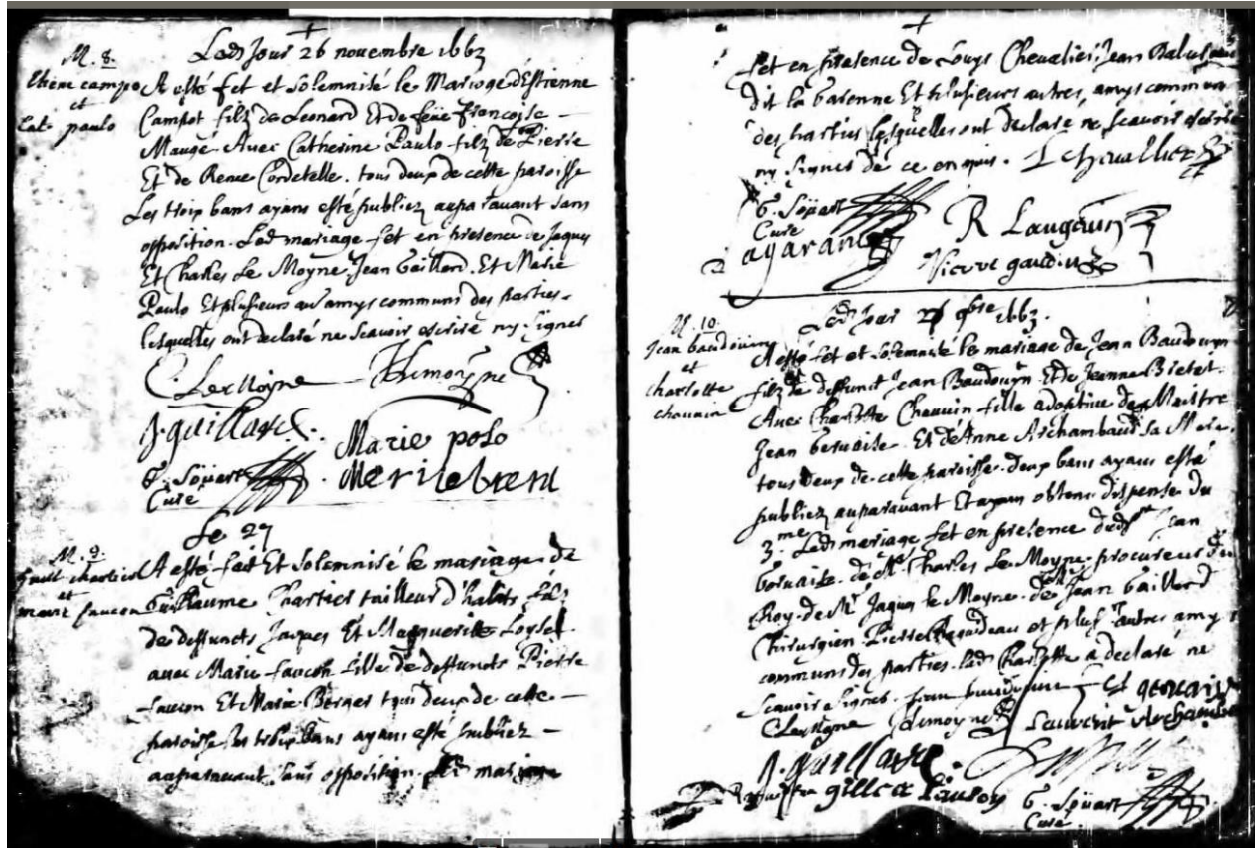 Led Jour 26 novembre 1663
M. 8.
Etiene campo
et
Cat. paulo
A esté fet et solemnisé le Mariage d'Estienne
Campot filz de Leonard Et de feüe françoise
Maugé. Avec Catherine Paulo filz de Pierre
Et de Renee Cordetelle. tous deux de cette paroisse
Les trois bans ayans esté publiez auparavant sans
opposition. Led mariage fet en presence de Jaques
Et Charles Le Moyne. Jean Gaillard. Et Marie
Paulo Et plusieurs au' amys communs des parties.
lesquelles ont declaré ne scavoir escrire ny signer
C. LeMoyne Lemoyne
J. guillard.
Marie polo
G. Soüart
Curé
Le 27
M. 9.
Guill chartier
et
marie faucon
A esté fait Et solemnisé le mariage de
Guillaume Chartier tailleur d'habits filz
de deffuncts Jacques Et Marguerite Loysel
avec Marie faucon fille de deffuncts Pierre
faucon Et Marie Berger tous deux de cette
paroisse les trois bans ayans esté publiez
auparavant sans opposition. Led mariage
fet en presence de Louys Chevalier, Jean
dit la Garenne Et plusieurs autres, amys commun
des parties lesquelles ont declaré ne scavoir escrire
ny signer de ce enquis. L chevallier
G. Soüart
Curé
R Laugain
agarand
Pierre gaudin
Led jour 27 9bre 1663.
M. 10.
Jean baudouin
et
charlotte
chauuin
A esté fet et solemnisé le mariage de Jean Baudouyn
filz de deffunct Jean Baudouyn Et de Jeanne Bretet.
Avec Charlotte Chauuin fille adoptive de Maistre
Jean Gervaise. Et d'Anne Archambaud sa Mere.
tous deux de cette paroisse. deux bans ayans esté
publiez auparavant Et ayans obtenu dispense du
3me. Led mariage fet en presence dud Jean
Gervaise. de Mr Charles Le Moyne procureur du
Roy. de Mr Jaques le Moyne. de Jean Gaillard
Chirurgien Pierre et plus' autres amys
communs des parties. lad Charlotte a declaré ne
scavoir signer.
C LeMoyne Lemoyne Laurent Archambau
J. guillard.
gilles Lauson
G. Soüart
Curé.